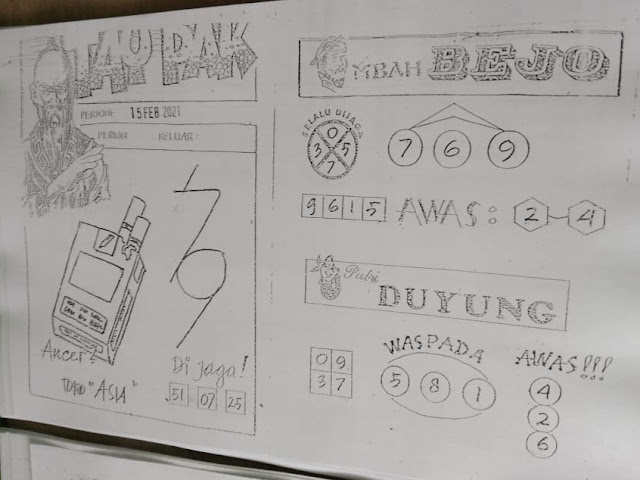 TAU PAK
PERIODE: 15 FEB 2021
PERIODE KELUAR:
Ancer²
TOKO "ASIA"
Di jaga!
51 07 25
MBAH BEJO
SELALU DIJAGA
0
3 5
7
7 6 9
9 6 1 5 AWAS: 2-4
Putri
DUYUNG
0 9
3 7
WASPADA
5 8 1
AWAS!!!
4
2
6